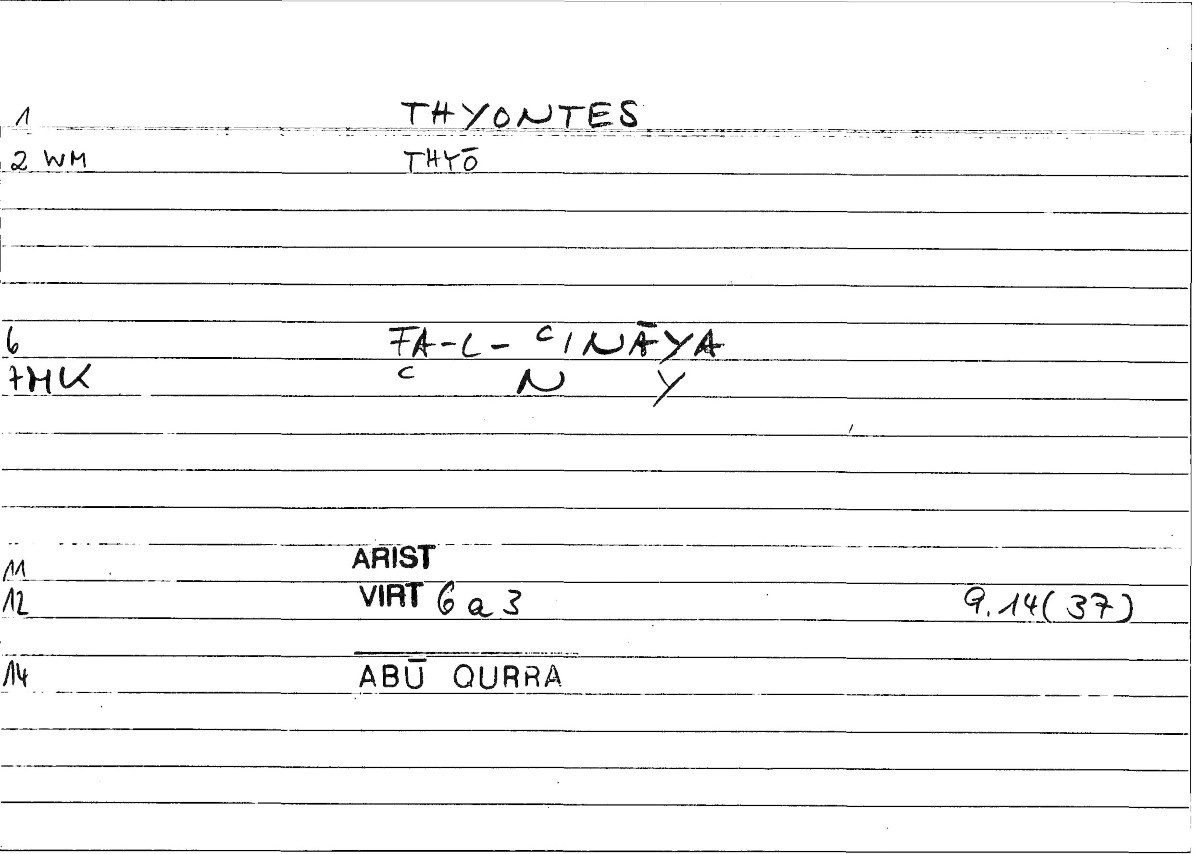 1 THYONTES
2 WM THYŌ
6 FA-L-ᶜINĀYA
7MK ᶜ N Y
11 ARIST
12 VIRT 6a3 9.14(37)
14 ABŪ QURRA